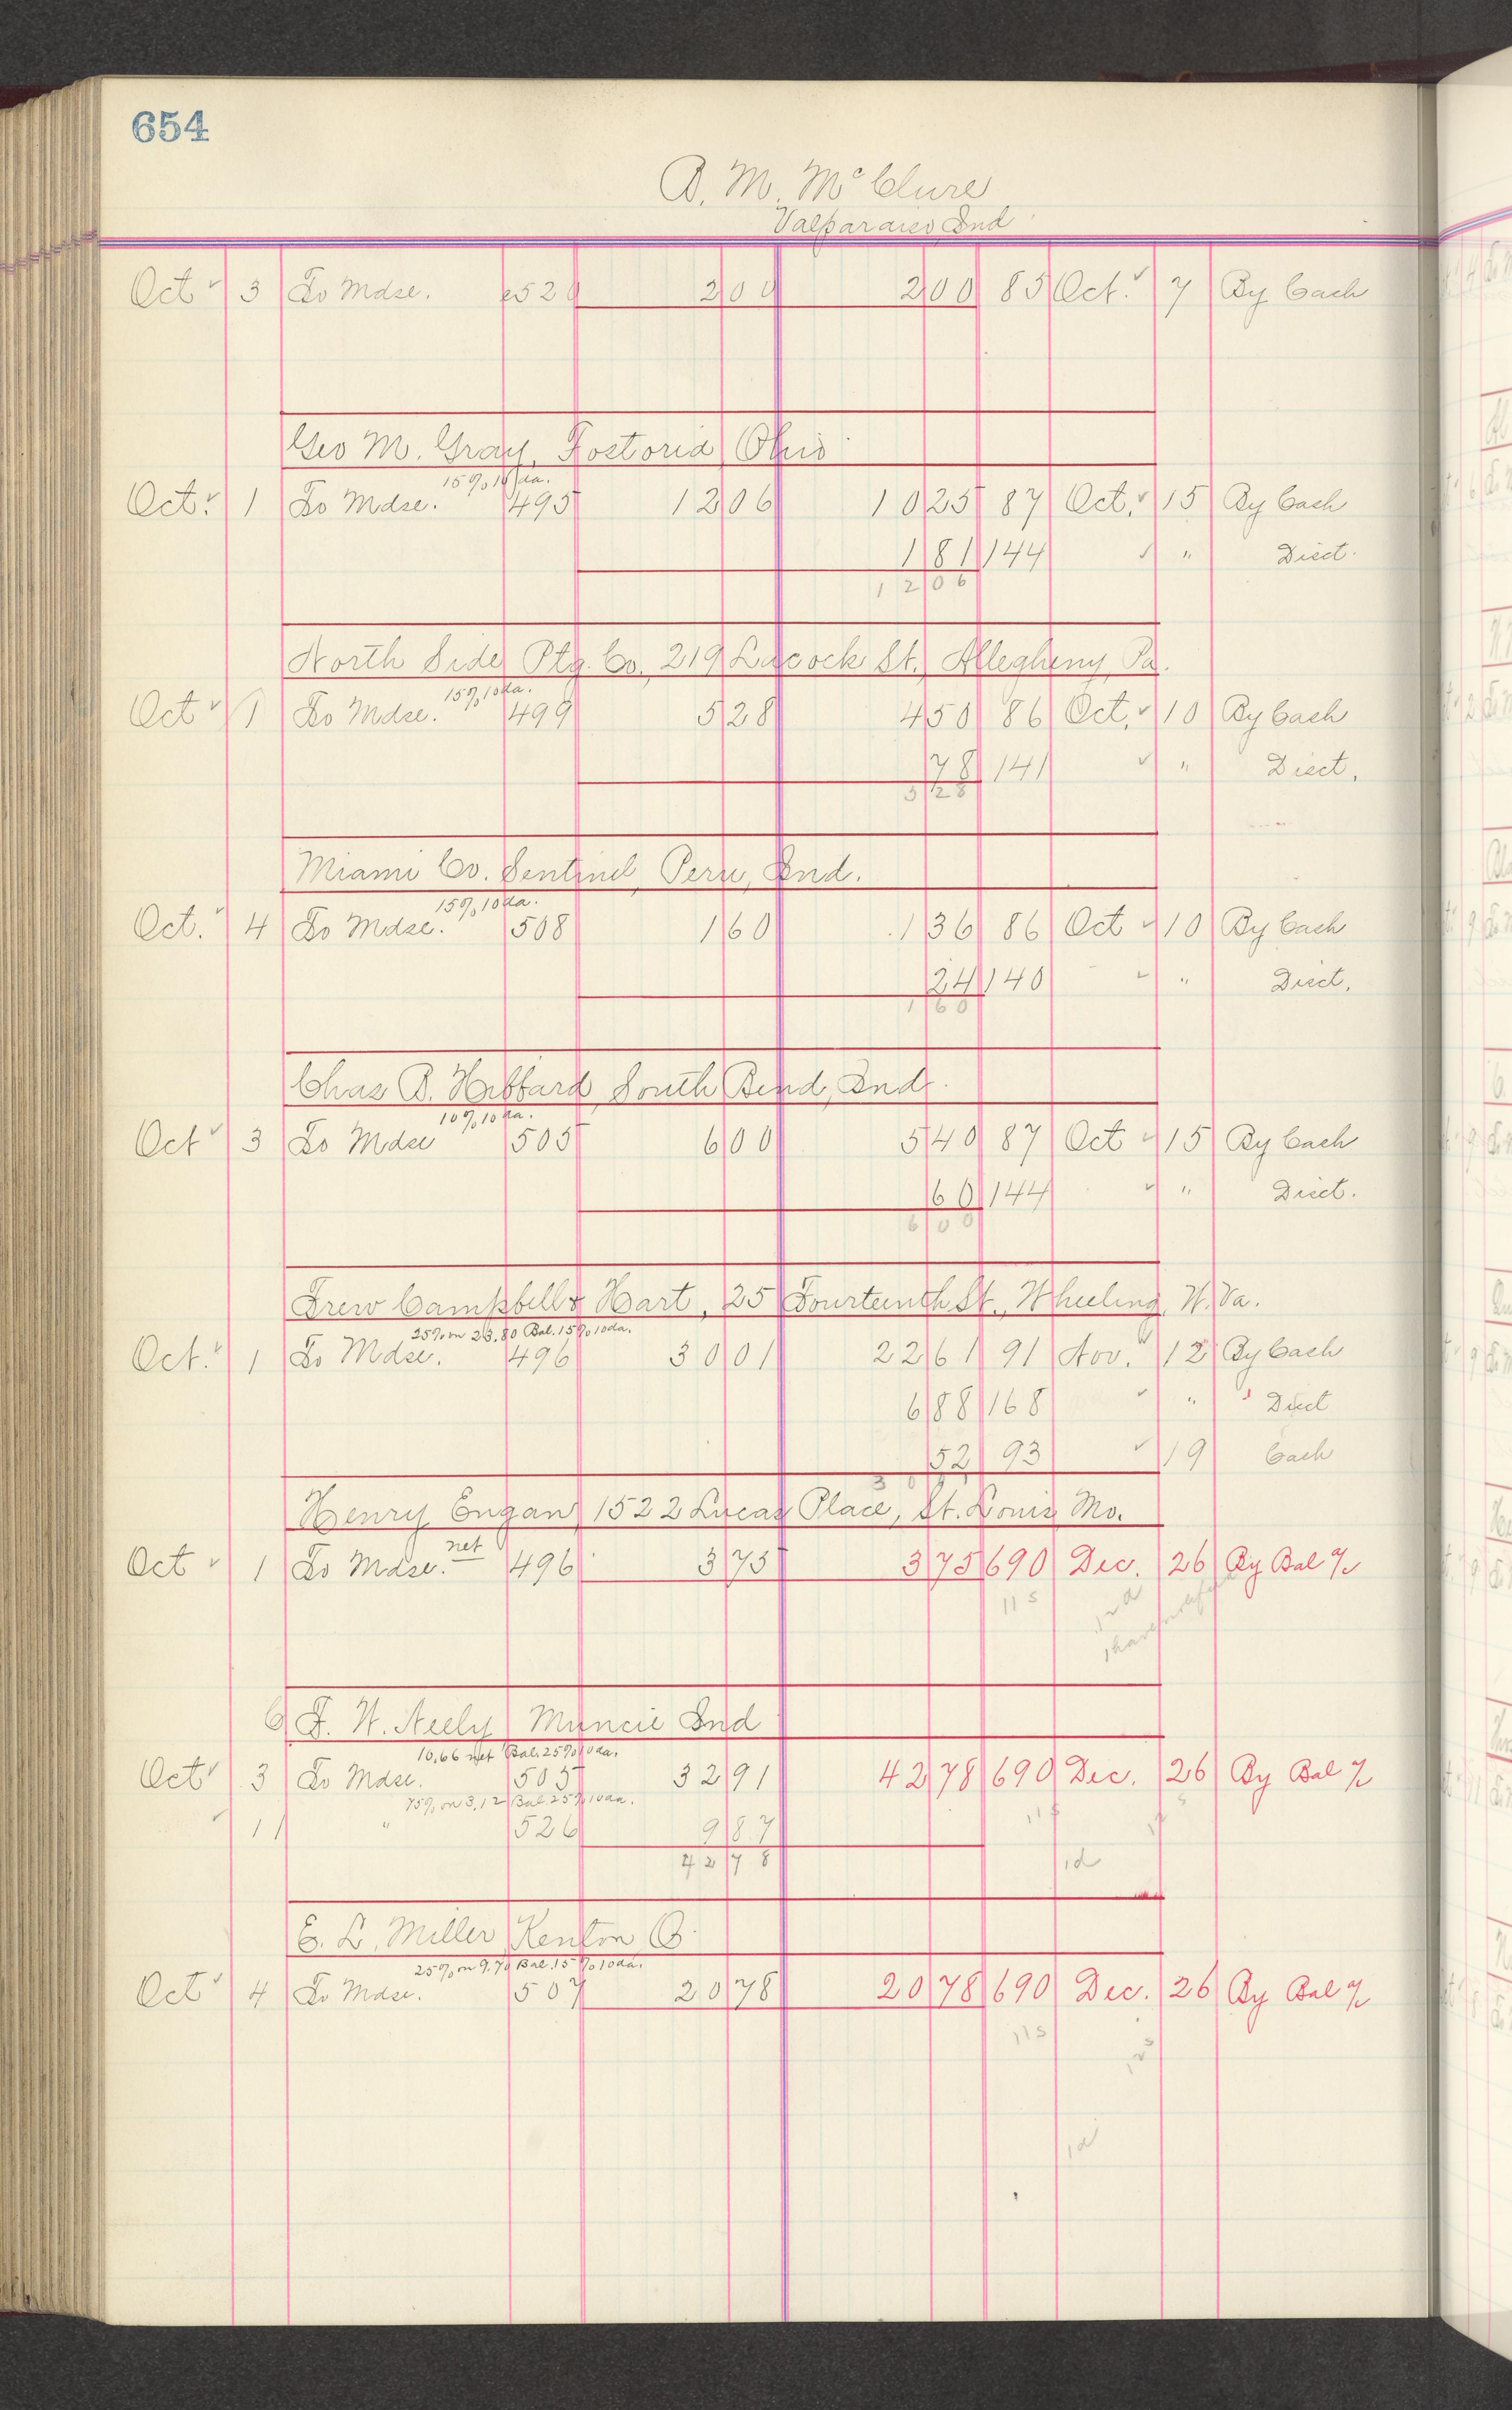 654
B. M. McClure
Valparaiso Ind
Oct 3 To Mdse. 520 2 00 2 00 85 Oct. 7 By Cash
Geo M. Gray, Fostoria, Ohio
15% 10 da.
Oct. 1 To Mdse. 495 12 06 10 25 87 Oct. 15 By Cash
1 81 144 " Disct.
12 06
North Side Ptg. Co., 219 Lacock St., Allegheny, Pa.
15% 10 da.
Oct 1 To Mdse. 499 5 28 4 50 86 Oct. 10 By Cash
78 141 " Disct.
5 28
Miami Co. Sentinel, Peru, Ind.
15% 10 da.
Oct. 4 To Mdse. 508 1 60 1 36 86 Oct 10 By Cash
24 140 " Disct.
1 60
Chas B. Hibbard, South Bend, Ind.
10% 10 da.
Oct 3 To Mdse 505 6 00 5 40 87 Oct 15 By Cash
60 144 " Disct.
6 00
Frew Campbell & Hart, 25 Fourteenth St., Wheeling, W. Va.
25% on 23.80 Bal. 15% 10 da.
Oct. 1 To Mdse. 496 30 01 22 61 91 Nov. 12 By Cash
6 88 168 " Disct
52 93 19 Cash
30 01
Henry Engan, 1522 Lucas Place, St. Louis, Mo.
net
Oct 1 To Mdse. 496 3 75 3 75 690 Dec. 26 By Bal %
11 s
F. W. Neely Muncie Ind
10.66 net Bal. 25% 10 da.
Oct 3 To Mdse. 505 32 91 42 78 690 Dec. 26 By Bal %
75% on 3.12 Bal 25% 10 da.
11 " 526 9 87
42 78
1d
E. L. Miller, Kenton O.
25% on 9.70 Bal. 15% 10 da.
Oct 4 To Mdse. 507 20 78 20 78 690 Dec. 26 By Bal %
11 s
1d